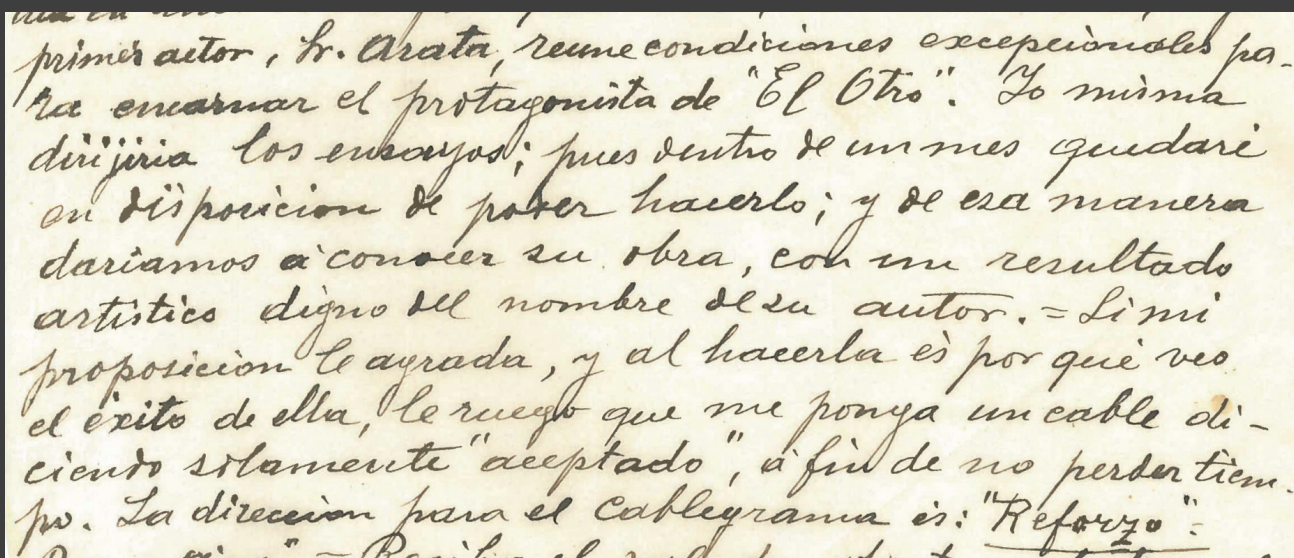 primer actor, Sr. Arata, reune condiciones excepcionales pa-
ra encarnar el protagonista de "El Otro". Yo misma
dirijiria los ensayos; pues dentro de un mes quedaré
en disposicion de poder hacerlo; y de esa manera
dariamos á conocer su obra, con un resultado
artistico digno del nombre de su autor. = Si mi
proposicion le agrada, y al hacerla es por qué veo
el éxito de ella, le ruego que me ponga un cable di-
ciendo solamente "aceptado", á fin de no perder tiem-
po. La direccion para el cablegrama es: "Reforzo" -